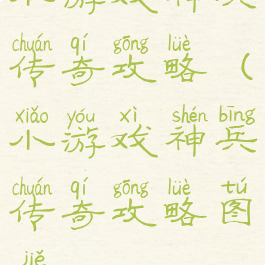 小游戏神兵
chuán qí gōng lüè
传奇攻略（
xiǎo yóu xì shén bīng
小游戏神兵
chuán qí gōng lüè tú
传奇攻略图
jiě